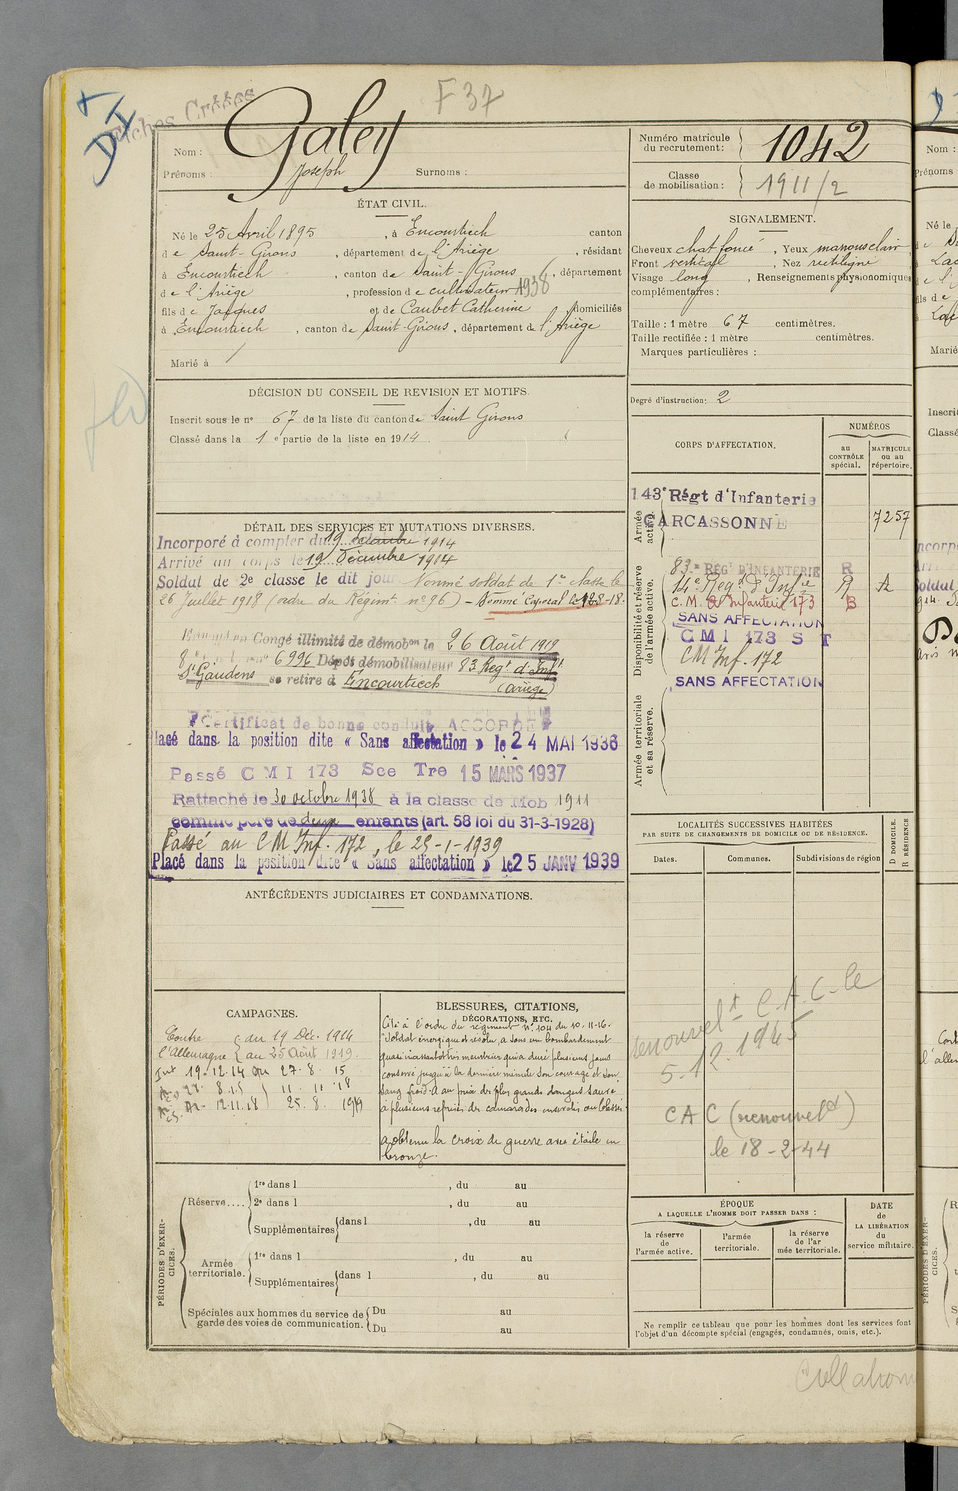 F 37
Fiches Créées
DI
Nom : Galey
Prénoms : Joseph Surnoms :
Numéro matricule du recrutement : 1042
Classe de mobilisation : 1911/2
ÉTAT CIVIL.
Né le 25 Avril 1895, à Encourtiech canton
de Saint-Girons, département de l'Ariège, résidant
à Encourtiech, canton de Saint-Girons, département
de l'Ariège, profession de cultivateur 1938
fils de Jacques et de Caubet Catherine domiciliés
à Encourtiech, canton de Saint-Girons, département de l'Ariège
Marié à /
SIGNALEMENT.
Cheveux chat foncé, Yeux marrons clair
Front vertical, Nez rectiligne
Visage long, Renseignements physionomiques
complémentaires :
Taille : 1 mètre 67 centimètres.
Taille rectifiée : 1 mètre centimètres.
Marques particulières :
Degré d'instruction : 2
DÉCISION DU CONSEIL DE REVISION ET MOTIFS.
Inscrit sous le n° 67 de la liste du canton de Saint Girons
Classé dans la 1e partie de la liste en 1914
DÉTAIL DES SERVICES ET MUTATIONS DIVERSES.
Incorporé à compter du 19 décembre 1914
Arrivé au corps le 19 Décembre 1914
Soldat de 2e classe le dit jour Nommé soldat de 1re classe le
26 Juillet 1918 (ordre du Régimt n° 96) - Nommé Caporal le
Congé illimité de démobon le 26 Août 1919
n° 6996 Dépôt démobilisateur 83 Regt d'Inf
St Gaudens se retire à Encourtiech
(Ariège)
Certificat de bonne conduite ACCORDÉ
Placé dans la position dite « Sans affectation » le 24 MAI 1936
Passé C M I 173 Sce Tre 15 MARS 1937
Rattaché le 30 octobre 1938 à la classe de Mob 1911
comme père de deux enfants (art. 58 loi du 31-3-1928)
Passé au CM Inf. 172, le 25-1-1939
Placé dans la position dite « Sans affectation » le 25 JANV 1939
CORPS D'AFFECTATION.
NUMÉROS
au CONTRÔLE spécial.
MATRICULE ou au répertoire.
Armée active.
143e Régt d'Infanterie
CARCASSONNE
7257
Disponibilité et réserve de l'armée active.
83e RÉGt D'INFANTERIE R
14e Regt d'Infie R A
C. M. d'Infanterie 173 B
SANS AFFECTATION
C M I 173 S T
CM Inf. 172
SANS AFFECTATION
Armée territoriale et sa réserve.
ANTÉCÉDENTS JUDICIAIRES ET CONDAMNATIONS.
LOCALITÉS SUCCESSIVES HABITÉES
PAR SUITE DE CHANGEMENTS DE DOMICILE OU DE RÉSIDENCE.
Dates. Communes. Subdivisions de région
D DOMICILE. R RÉSIDENCE
renouvelt C.A.C. le
5.12.1945
C A C (renouvelet)
le 18-2-44
CAMPAGNES.
Contre l'Allemagne
du 19 Déc. 1914
au 25 Août 1919.
Int 19-12-14 au 27.8.15
27.8.15 11.11.18
12.11.18 25.8.1919
BLESSURES, CITATIONS,
DÉCORATIONS, ETC.
Cité à l'ordre du régiment n° 104 du 10-11-16.
"Soldat énergique et résolu, a sous un bombardement
qui a duré plusieurs jours
conservé jusqu'à la dernière minute son courage et son
sang froid. A au prix des plus grands dangers sauvé
à plusieurs reprises des camarades ensevelis ou blessés
a obtenu la croix de guerre avec étoile en
bronze.
PÉRIODES D'EXERCICES.
Réserve....
1re dans l , du au
2e dans l , du au
Supplémentaires dans l , du au
Armée territoriale.
1re dans l , du au
Supplémentaires dans l , du au
Spéciales aux hommes du service de garde des voies de communication.
Du au
Du au
ÉPOQUE
A LAQUELLE L'HOMME DOIT PASSER DANS :
la réserve de l'armée active.
l'armée territoriale.
la réserve de l'armée territoriale.
DATE de LA LIBÉRATION du service militaire.
Ne remplir ce tableau que pour les hommes dont les services font
l'objet d'un décompte spécial (engagés, condamnés, omis, etc.).